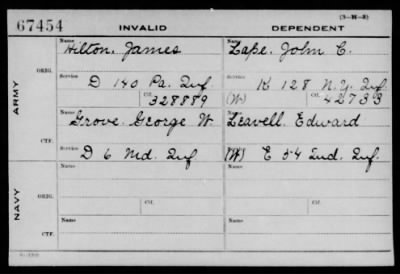 (3-H-2)
67454 INVALID DEPENDENT
Name Name
Hilton, James Lape, John C.
ORIG. Service Ctf. Service Ctf.
D 140 Pa. Inf. K 128 N.Y. Inf.
328889 (W) 42733
ARMY
Name Name
Grove, George W. Leavell, Edward
CTF. Service Service
D 6 Md. Inf (W) E 54 Ind. Inf.
Name Name
ORIG. Service Ctf. Service Ctf.
NAVY
Name Name
CTF.